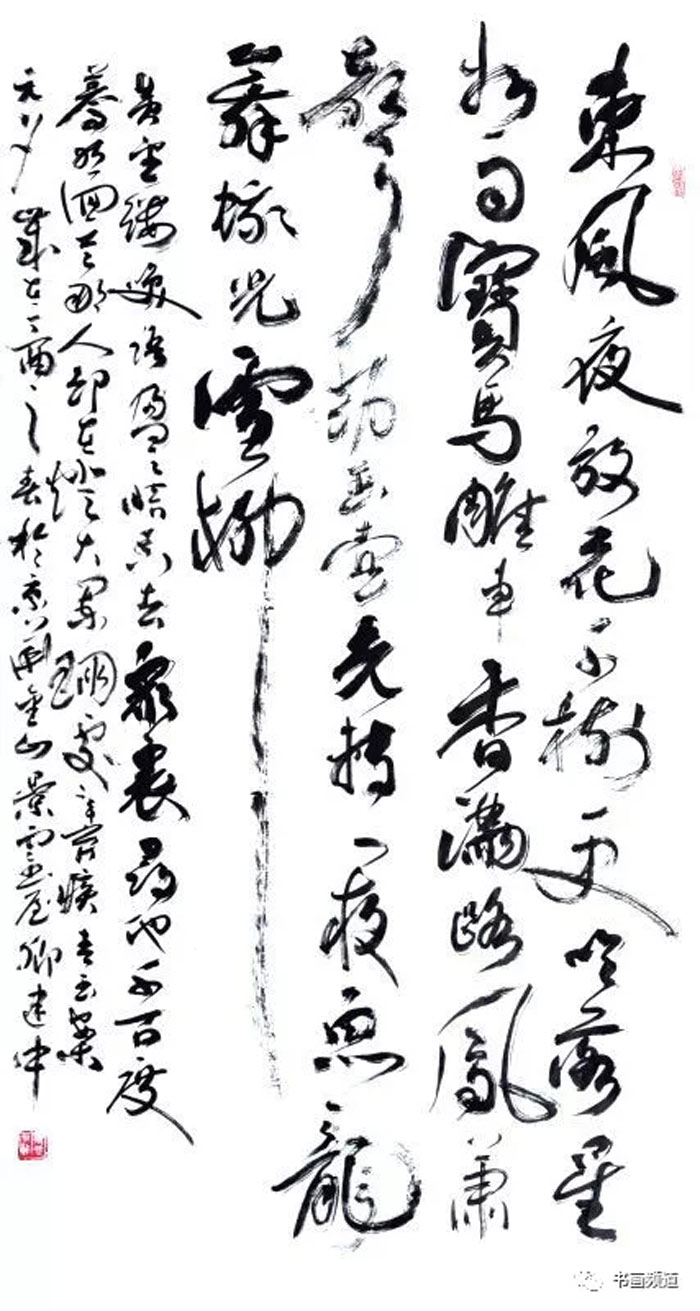 東風夜放花千樹更吹落星
如雨寶馬雕車香滿路鳳簫
聲動玉壺光轉一夜魚龍
舞蛾兒雪柳
黃金縷笑語盈盈暗香去眾裏尋他千百度
驀然回首那人卻在燈火闌珊處辛棄疾青玉案
元夕歲在丁酉之春於京金山景雲建中
书画频道